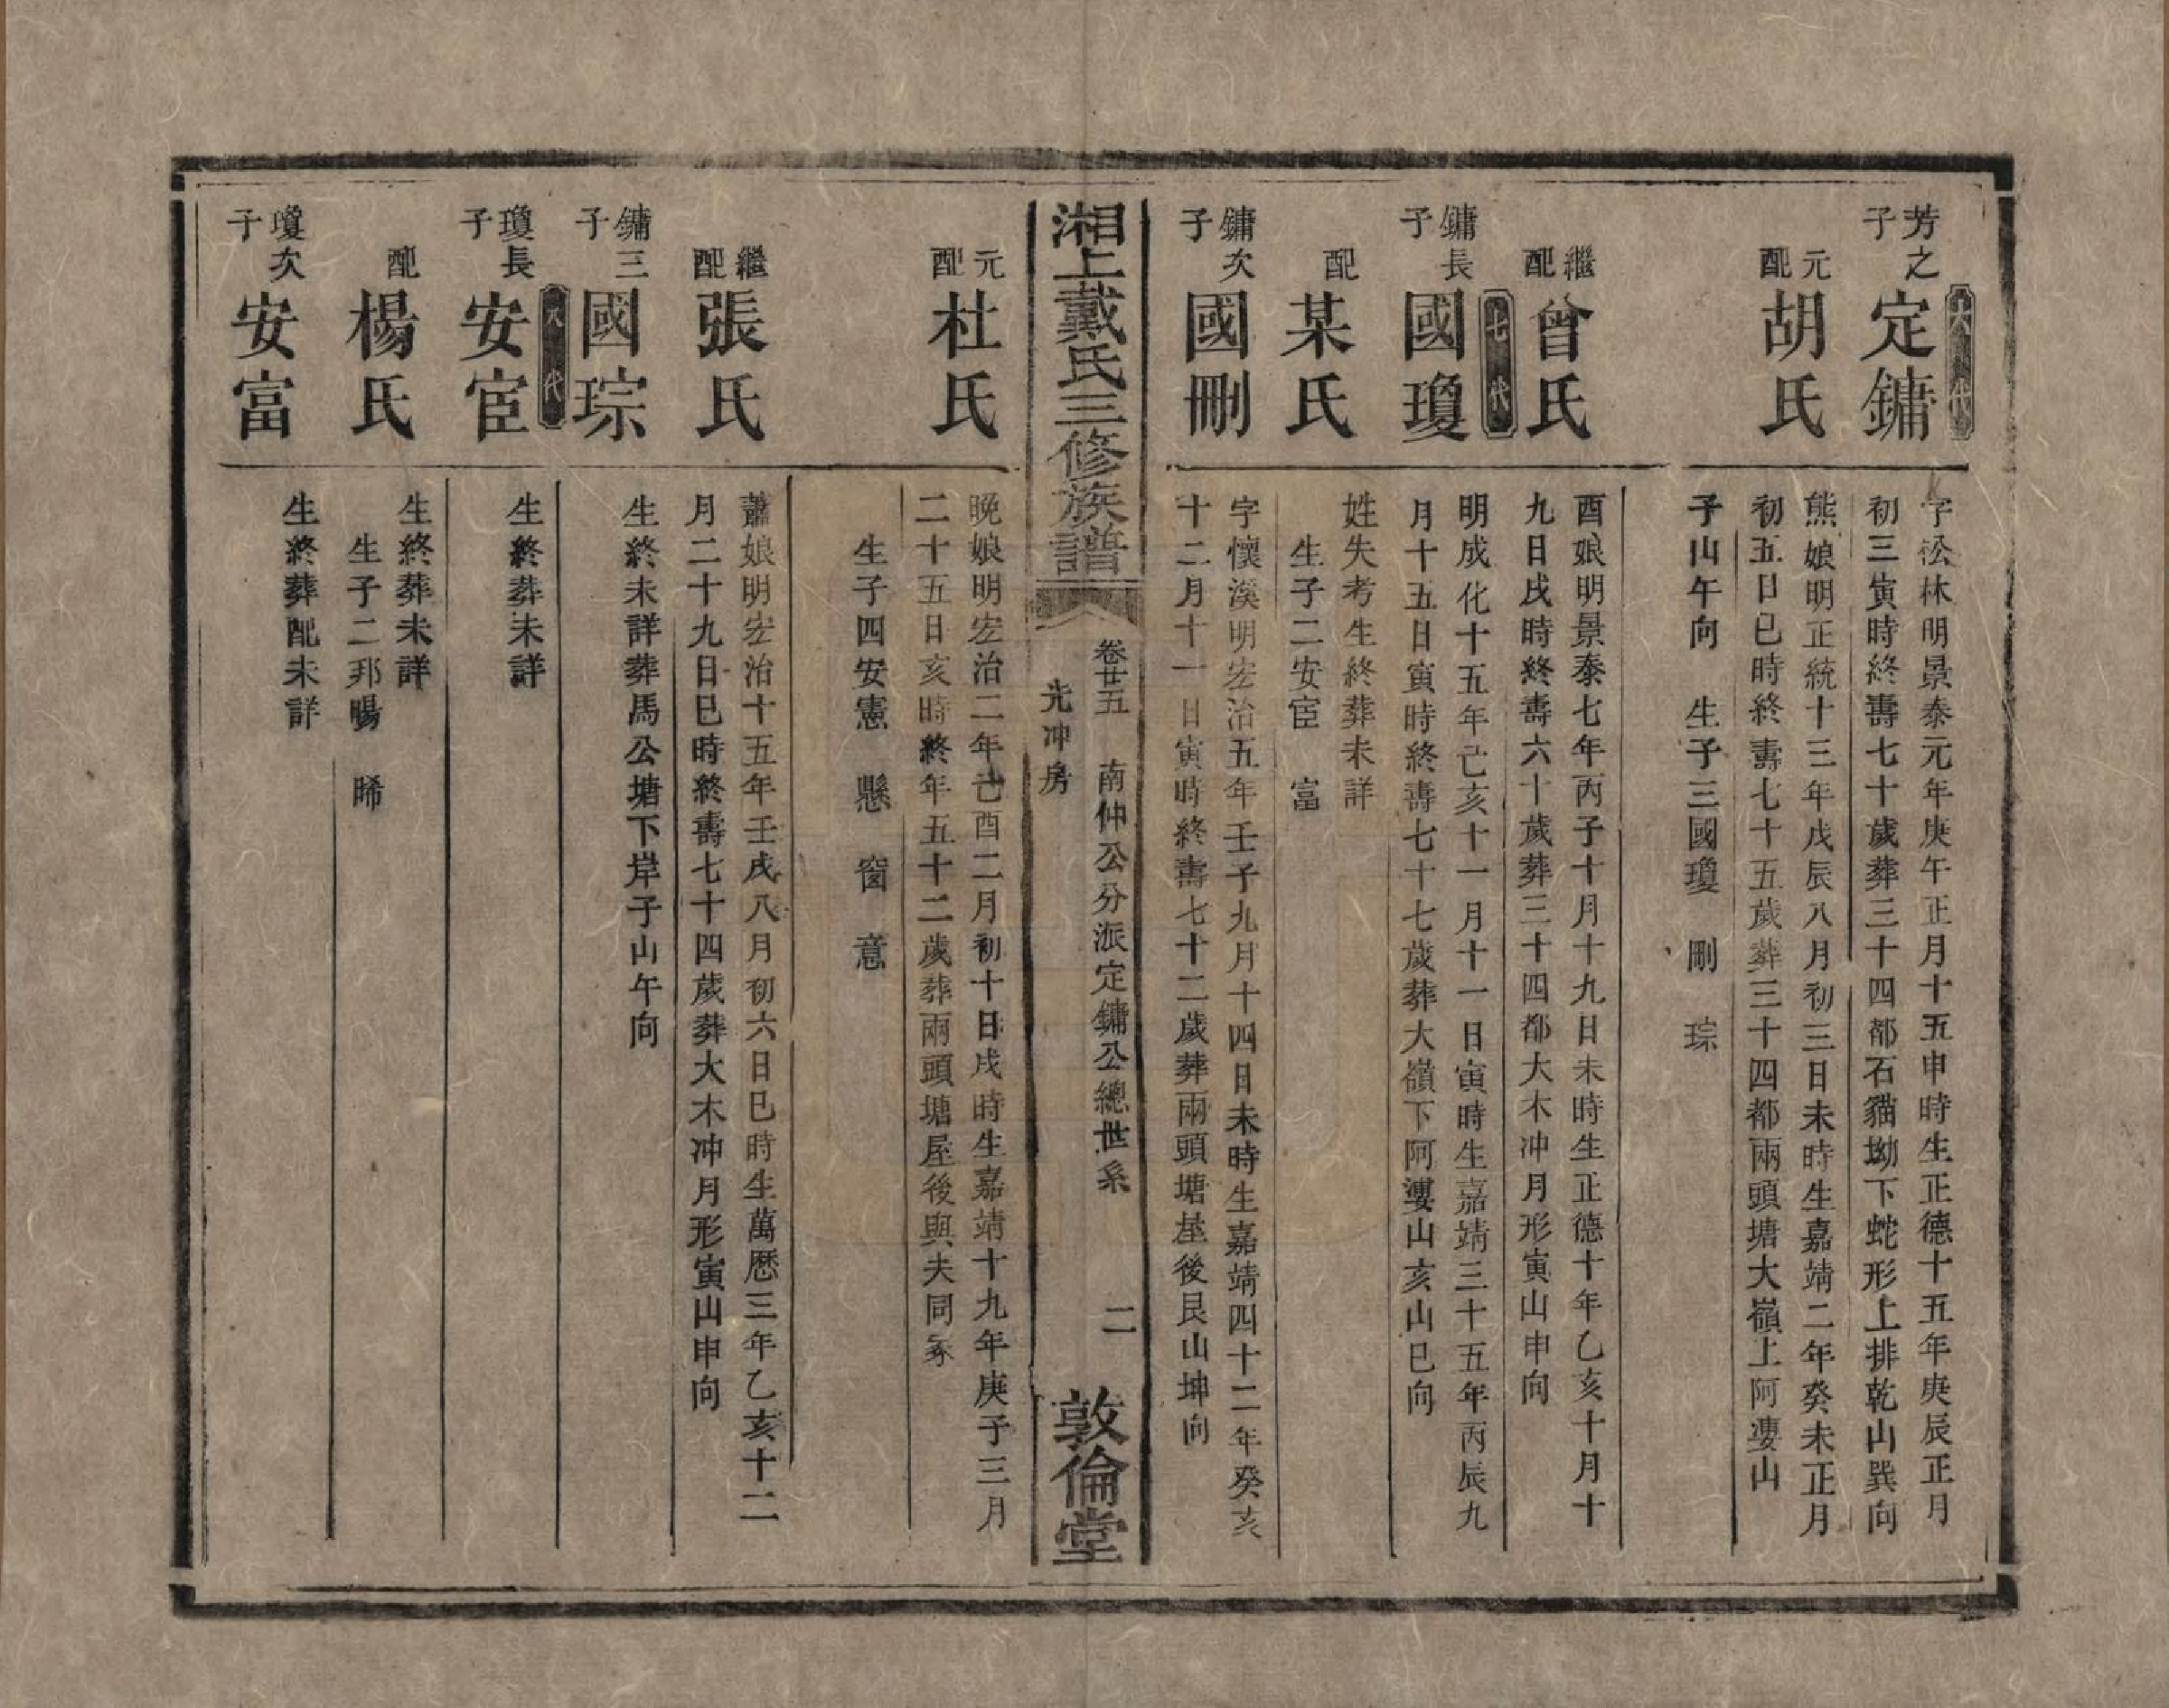 六代
芳之子 定鏞
字松林明景泰元年庚午正月十五申時生正德十五年庚辰正月
初三寅時終壽七十歲葬三十四都石貓坳下蛇形上排乾山巽向
元配 胡氏
熊娘明正統十三年戊辰八月初三日未時生嘉靖二年癸未正月
初五日巳時終壽七十五歲葬三十四都兩頭塘大嶺上阿婆山
子山午向 生子三國瓊 剛 琮
繼配 曾氏
酉娘明景泰七年丙子十月十九日未時生正德十年乙亥十月十
九日戌時終壽六十歲葬三十四都大木冲月形寅山申向
七代
鏞長子 國瓊
明成化十五年己亥十一月十一日寅時生嘉靖三十五年丙辰九
月十五日寅時終壽七十七歲葬大嶺下阿婆山亥山巳向
配 某氏
姓失考生終葬未詳
生子二安宦 富
鏞次子 國剛
字懷溪明宏治五年壬子九月十四日未時生嘉靖四十二年癸亥
十二月十一日寅時終壽七十二歲葬兩頭塘屋後艮山坤向
湘上戴氏三修族譜
卷廿五 南仲公分派定鏞公總世系 二
先冲房
敦倫堂
元配 杜氏
晚娘明宏治二年己酉二月初十日戌時生嘉靖十九年庚子三月
二十五日亥時終年五十二歲葬兩頭塘屋後與夫同冢
生子四安憲 懸 窗 意
繼配 張氏
蕭娘明宏治十五年壬戌八月初六日巳時生萬歷三年乙亥十二
月二十九日巳時終壽七十四歲葬大木冲月形寅山申向
鏞三子 國琮
生終未詳葬馬公塘下岸子山午向
八代
瓊長子 安宦
生終葬未詳
配 楊氏
生終葬未詳
生子二邦暘 晞
瓊次子 安富
生終葬配未詳